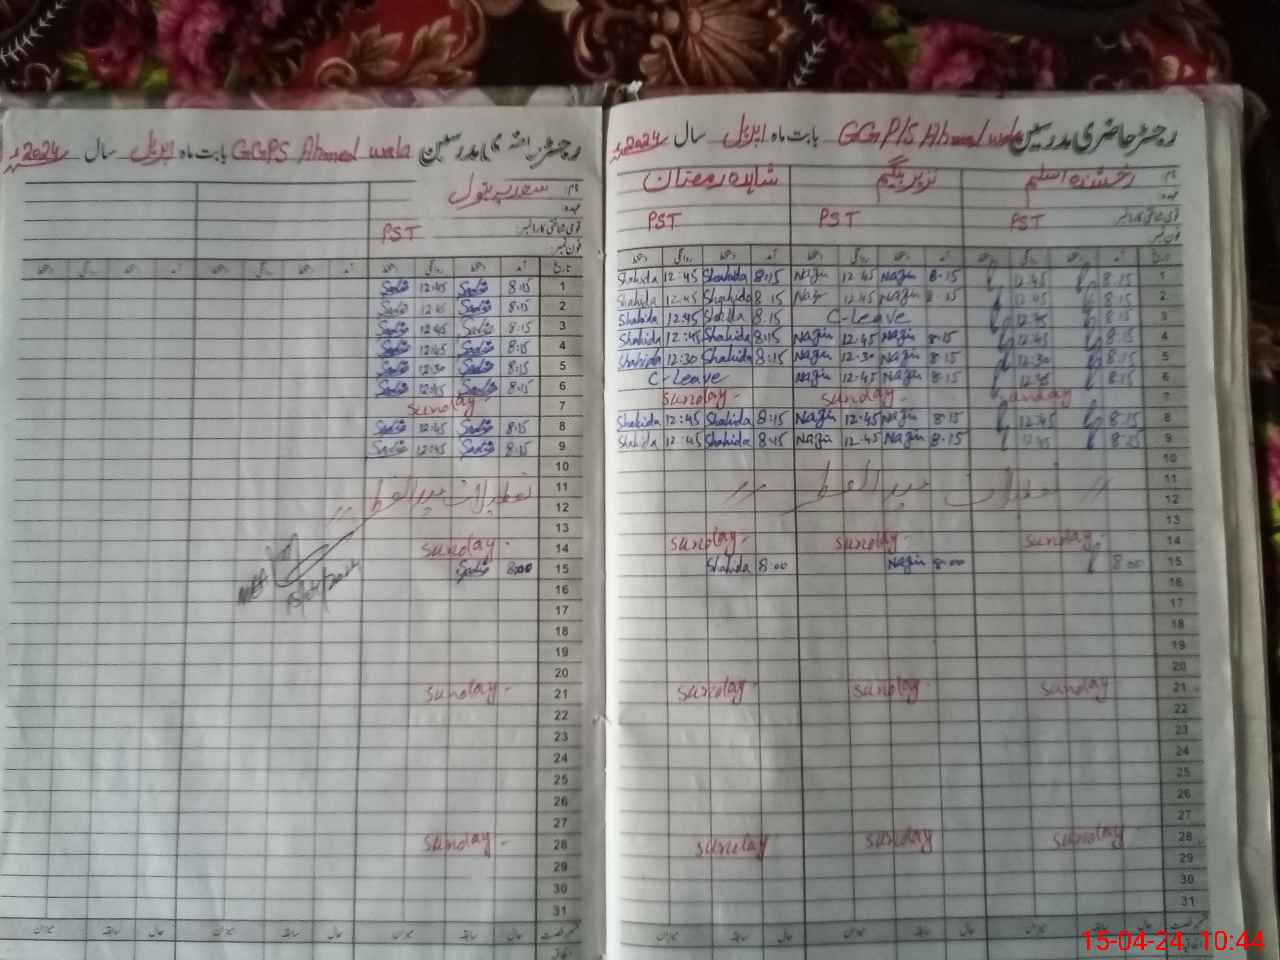 رجسٹر حاضری مدرسین GGP/S Ahmad wala بابت ماہ اپریل سال 2024ء
نام: رخشندہ اسلم نذیر بیگم شاہدہ رمضان
عہدہ:
قومی شناختی کارڈ نمبر: PST PST PST
فون نمبر:
تاریخ آمد دستخط روانگی دستخط آمد دستخط روانگی دستخط آمد دستخط روانگی دستخط
1 8:15 12:45 8:15 Nazir 12:45 Nazir 8:15 Shahida 12:45 Shahida
2 8:15 12:45 8:15 Nazir 12:45 Nazir 8:15 Shahida 12:45 Shahida
3 8:15 12:45 C-Leave 8:15 Shahida 12:45 Shahida
4 8:15 12:45 8:15 Nazir 12:45 Nazir 8:15 Shahida 12:45 Shahida
5 8:15 12:30 8:15 Nazir 12:30 Nazir 8:15 Shahida 12:30 Shahida
6 8:15 12:45 8:15 Nazir 12:45 Nazir C-Leave
7 Sunday Sunday Sunday
8 8:15 12:45 8:15 Nazir 12:45 Nazir 8:15 Shahida 12:45 Shahida
9 8:15 12:45 8:15 Nazir 12:45 Nazir 8:15 Shahida 12:45 Shahida
10
11 تعطیلات عید الفطر
12
13
14 Sunday Sunday Sunday
15 8:00 8:00 Nazir 8:00 Shahida
16
17
18
19
20
21 Sunday Sunday Sunday
22
23
24
25
26
27
28 Sunday Sunday Sunday
29
30
31
حال سابقہ میزان حال سابقہ میزان حال سابقہ میزان
رجسٹر حاضری مدرسین GGPS Ahmad wala بابت ماہ اپریل سال 2024ء
نام: بتول
عہدہ:
قومی شناختی کارڈ نمبر: PST
فون نمبر:
تاریخ آمد دستخط روانگی دستخط آمد دستخط روانگی دستخط آمد دستخط روانگی دستخط
1 8:15 12:45
2 8:15 12:45
3 8:15 12:45
4 8:15 12:45
5 8:15 12:30
6 8:15 12:45
7 Sunday
8 8:15 12:45
9 8:15 12:45
10
11 تعطیلات عید الفطر
12
13
14 Sunday
15 8:00
16
17
18
19
20
21 Sunday
22
23
24
25
26
27
28 Sunday
29
30
31
حال سابقہ میزان حال سابقہ میزان حال سابقہ میزان
15-04-24 10:44